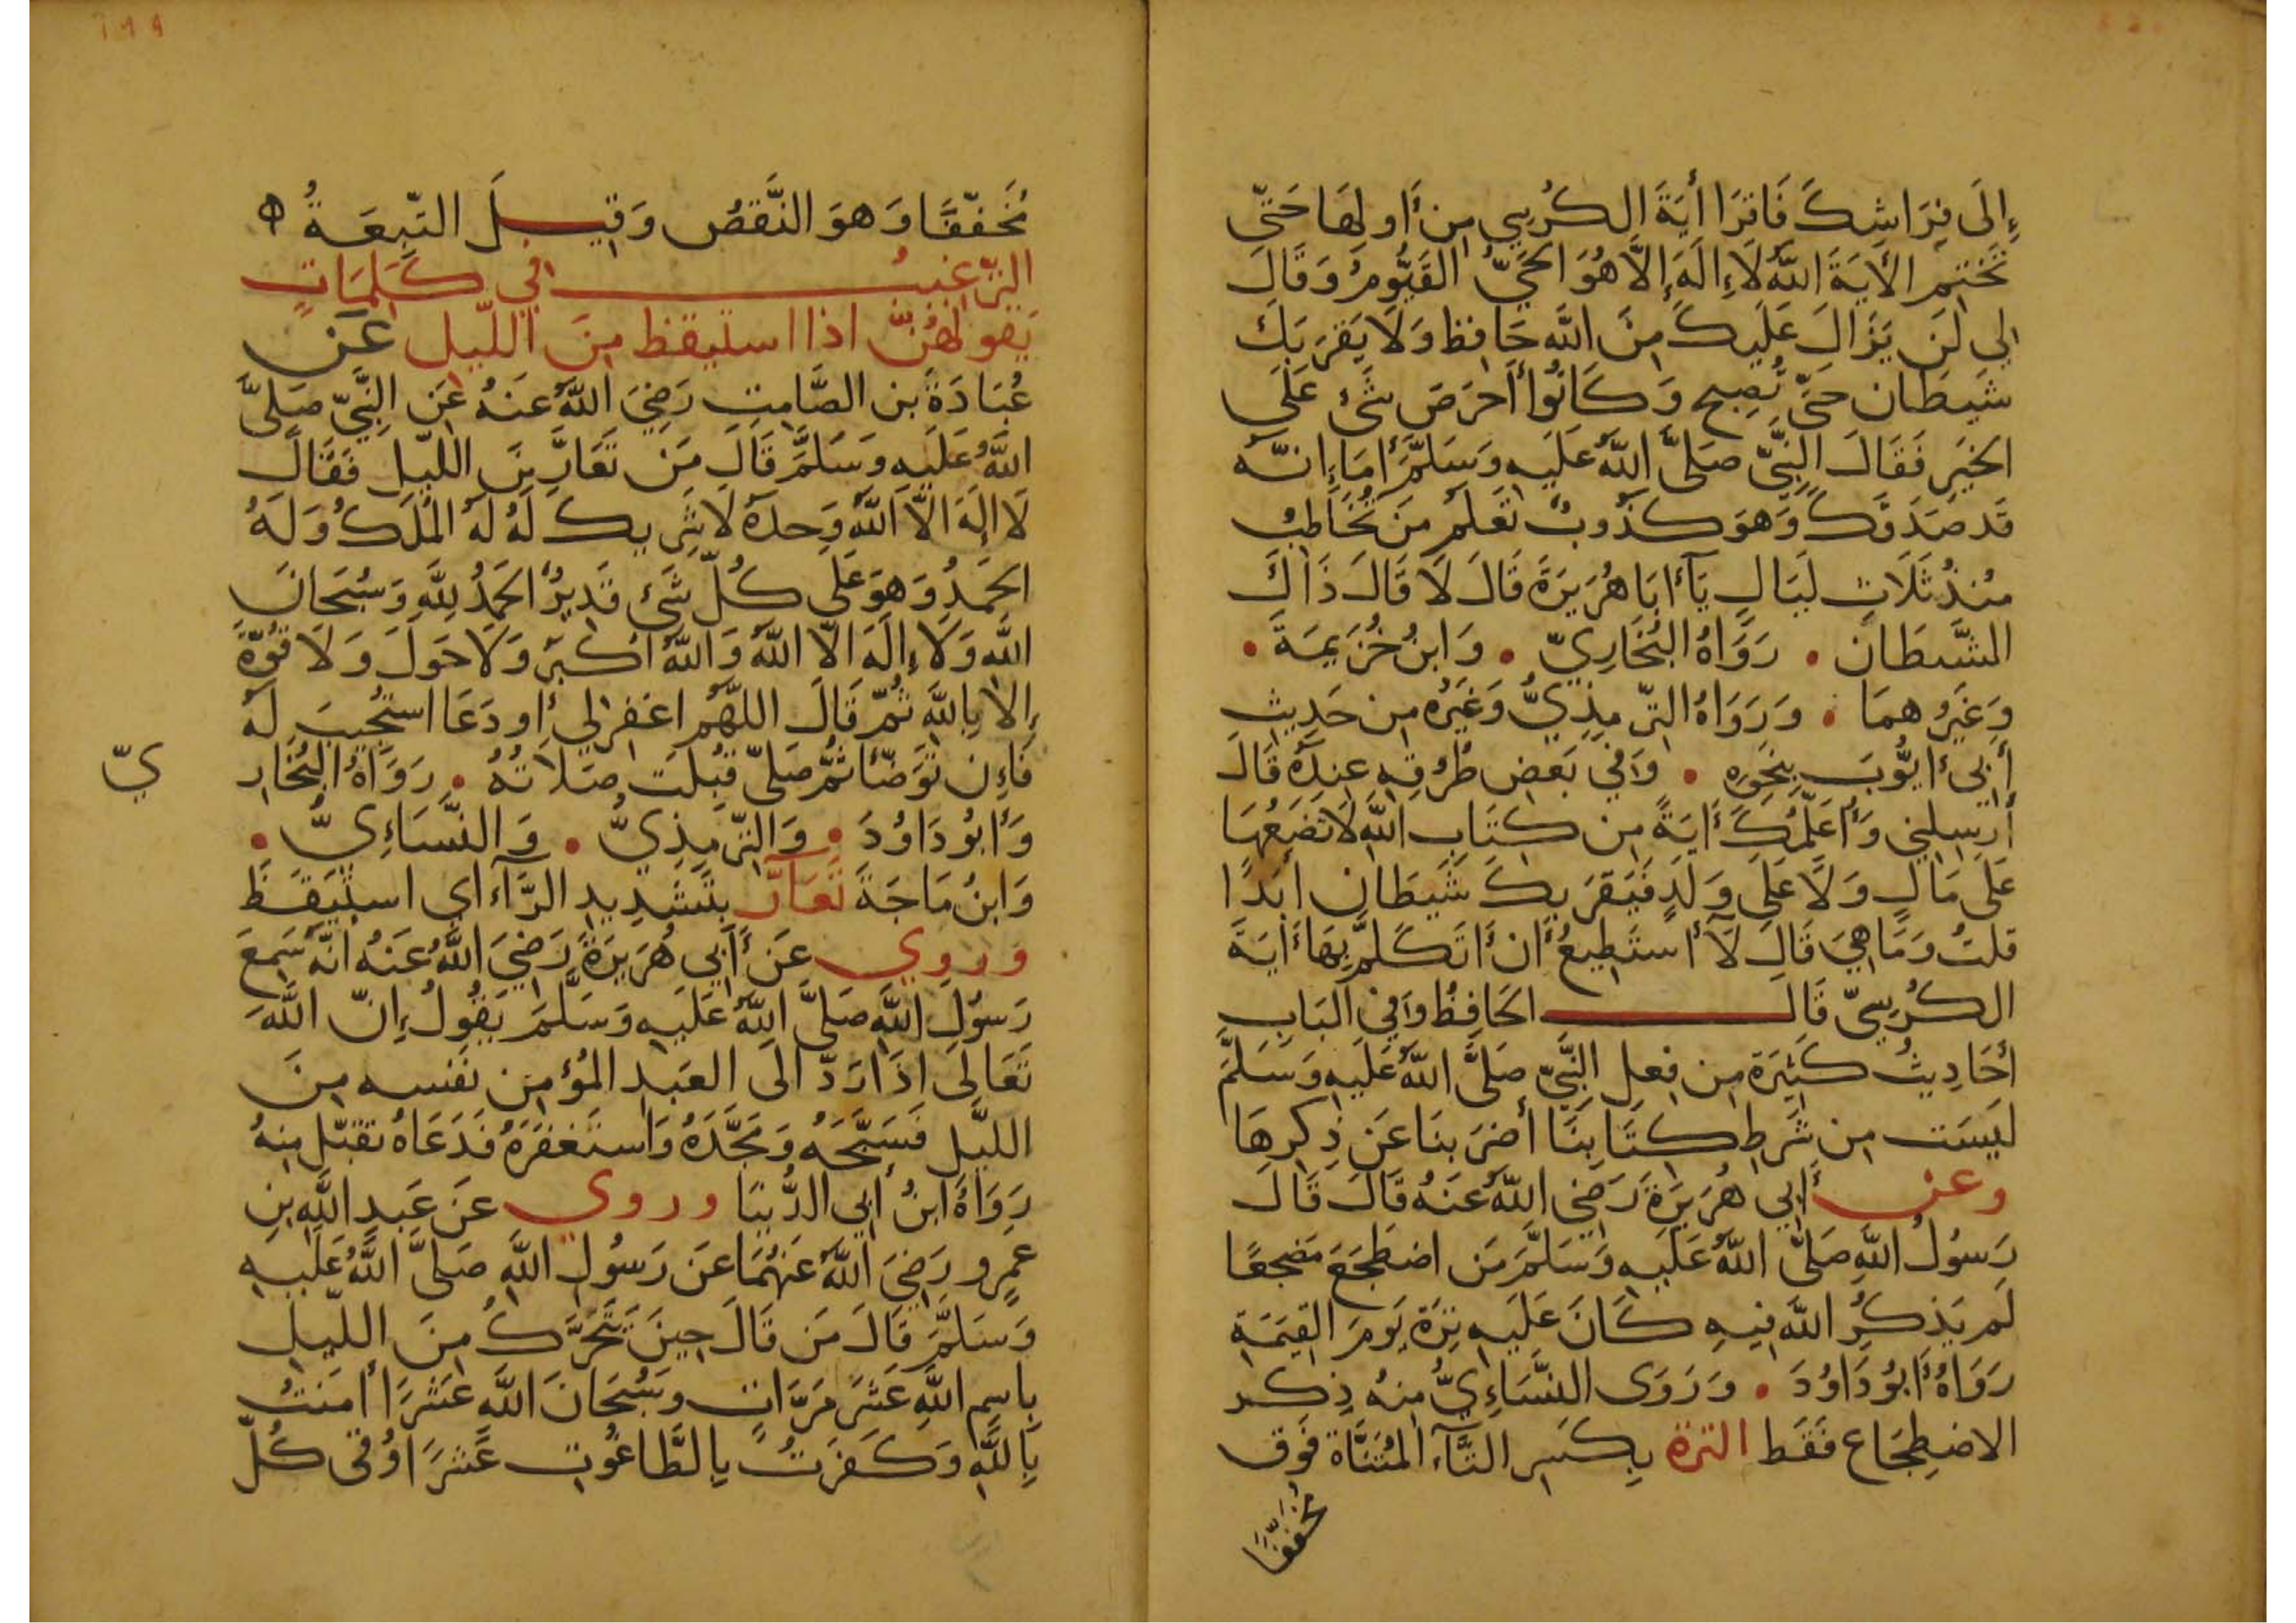 إِلَى فِرَاشِكَ فَاقرَا أيَةَ الكُرسِي مِن أَولِهَا حَتّى
تَختِم الأيَةَ اللَّهُ لَا إلَهَ إلَّا هُوَ الحَيُّ القَيُّومُ وَقَالَ
لِي لَن يَزَالَ عَلَيكَ مِنَ اللَّه حَافِظ وَلَا يَقرَبَكَ
شَيطَان حَتَّى تُصبِح وَكَانُوا أَحرَصَ شَئ عَلَى
الخَيرِ فَقَالَ النَّبِيّ صَلَّى اللَّهُ عَلَيهِ وَسَلَّمَ أمَا إِنَّهُ
قَد صَدَقَكَ وَهوَ كَذُوبٌ تَعلَم مَن تُخَاطِبُ
مُنذُ ثَلَاثِ لَيَالٍ يَآ أبَا هُرَيرَةَ قَالَ لَا قَالَ ذَاكَ
الشَّيطَان • رَوَاهُ البُخَارِيّ • وَابنُ خُزَيمَةَ •
وَغَيرُهمَا • وَرَوَاهُ التّرمِذِيُّ وَغَيرُه مِن حَدِيثِ
أَبِي أيُّوبَ بِنَحوِهِ • وَفي بَعضِ طُرُقِهِ عِندَهُ قَالَ
أَرسِلنِي وَأعَلِّمُكَ أيَةً مِن كِتَابِ اللَّهِ لَا تَضَعُهَا
عَلَى مَالٍ وَلَا عَلَى وَلَدٍ فَيَقرَبكَ شَيطَان أبَدًا
قلتُ وَمَا هِيَ قَالَ لَا أستَطِيعُ أَن أَتَكَلَّمَ بِهَا أيَةَ
الكُرسِيّ قَالَ الحَافِظُ وَفِي البَابِ
أحَادِيثُ كَثِيرَة مِن فِعلِ النَّبِيّ صَلَّى اللَّهُ عَلَيهِ وَسَلَّمَ
لَيسَت مِن شَرطِ كِتَابِنَا أضرَبنَا عَن ذِكرِهَا
وعن أَبِي هُرَيرَةَ رَضِيَ اللَّهُ عَنهُ قَالَ قَالَ
رَسُولُ اللَّهِ صَلَّى اللَّهُ عَلَيهِ وَسَلَّمَ مَن اضطَجَعَ مَضجعًا
لَم يَذكُرُ اللَّه فِيهِ كَانَ عَلَيهِ تِرَة يَومَ القِيمَةِ
رَوَاهُ أَبُو دَاوُدَ • وَرَوَى النَّسَاءِيُّ مِنهُ ذِكر
الاضطِجَاع فَقَط الترة بِكَسرِ التَّآءِ المُثَنَّاة فَوق
مُخَفَّفًا
مُخَفّفًا وَهوَ النَّقصُ وَقِيلَ التَّبِعَةُ
الترغيبُ في كَلِمَاتٍ
يَقولهُنَّ اذا استيقظ مِنَ اللّيل عَن
عُبَادَةَ بنِ الصَّامِتِ رَضِيَ اللَّهُ عَنهُ عَنِ النَّبِيّ صَلَّى
اللَّهُ عَلَيهِ وَسَلَّمَ قَالَ مَن تَعَارَّ مِنَ اللَّيلِ فَقَالَ
لَا الَهَ الّا اللَّهُ وَحدَهُ لَا شَرِيكَ لَهُ لَهُ المُلكُ وَلَهُ
الحَمدُ وَهوَ عَلَى كُلّ شَئ قَدِيرٌ الحَمدُ لِلَّهِ وَسُبحَانَ
اللَّه وَلَا إلَهَ الّا اللَّهُ وَاللَّهُ اكبَرُ وَلَا حَولَ وَلَا قُوّةَ
إلّا بِاللَّهِ ثُمّ قَالَ اللَّهُمَّ اغفِر لِي أو دَعَا استُجِيبَ لَهُ
فَإن تَوَضّأ ثُمَّ صَلّى قُبِلَت صَلَاتُهُ • رَوَاهُ البُخَار
يّ
وَأَبُو دَاوُدَ • وَالتّرمِذِيُّ • وَالنَّسَاءِيُّ •
وَابنُ مَاجَةَ تَعَارَّ بِتَشدِيدِ الرَّآءِ اي استَيقَظَ
وروي عَن أَبِي هُرَيرَةَ رَضِيَ اللَّهُ عَنهُ انَّهُ سَمِعَ
رَسُولَ اللَّهِ صَلَّى اللَّهُ عَلَيهِ وَسَلَّمَ يَقُولُ إنّ اللَّهَ
تَعَالَى اذَا رَدّ الَى العَبدِ المُؤمِن نَفسه مِنَ
اللَّيلِ فَسَبَّحَهُ وَمَجَّدَهُ وَاستَغفَرَهُ فَدَعَاهُ تقبّل مِنهُ
رَوَاهُ ابنُ أَبِي الدُّنيَا وروي عَن عَبدِ اللَّهِ بنِ
عَمرو رَضِيَ اللَّهُ عَنهُمَا عَن رَسُولِ اللَّهِ صَلَّى اللَّهُ عَلَيهِ
وَسَلَّمَ قَالَ مَن قَالَ حِينَ يَتَحَرَّكُ مِنَ اللّيلِ
بِاسمِ اللَّهِ عَشرَ مَرَّاتٍ وَسُبحَانَ اللَّهِ عَشرَا أمَنتُ
بِاللَّهِ وَكَفَرتُ بِالطَّاغُوتِ عَشرَا وُقى كُلّ